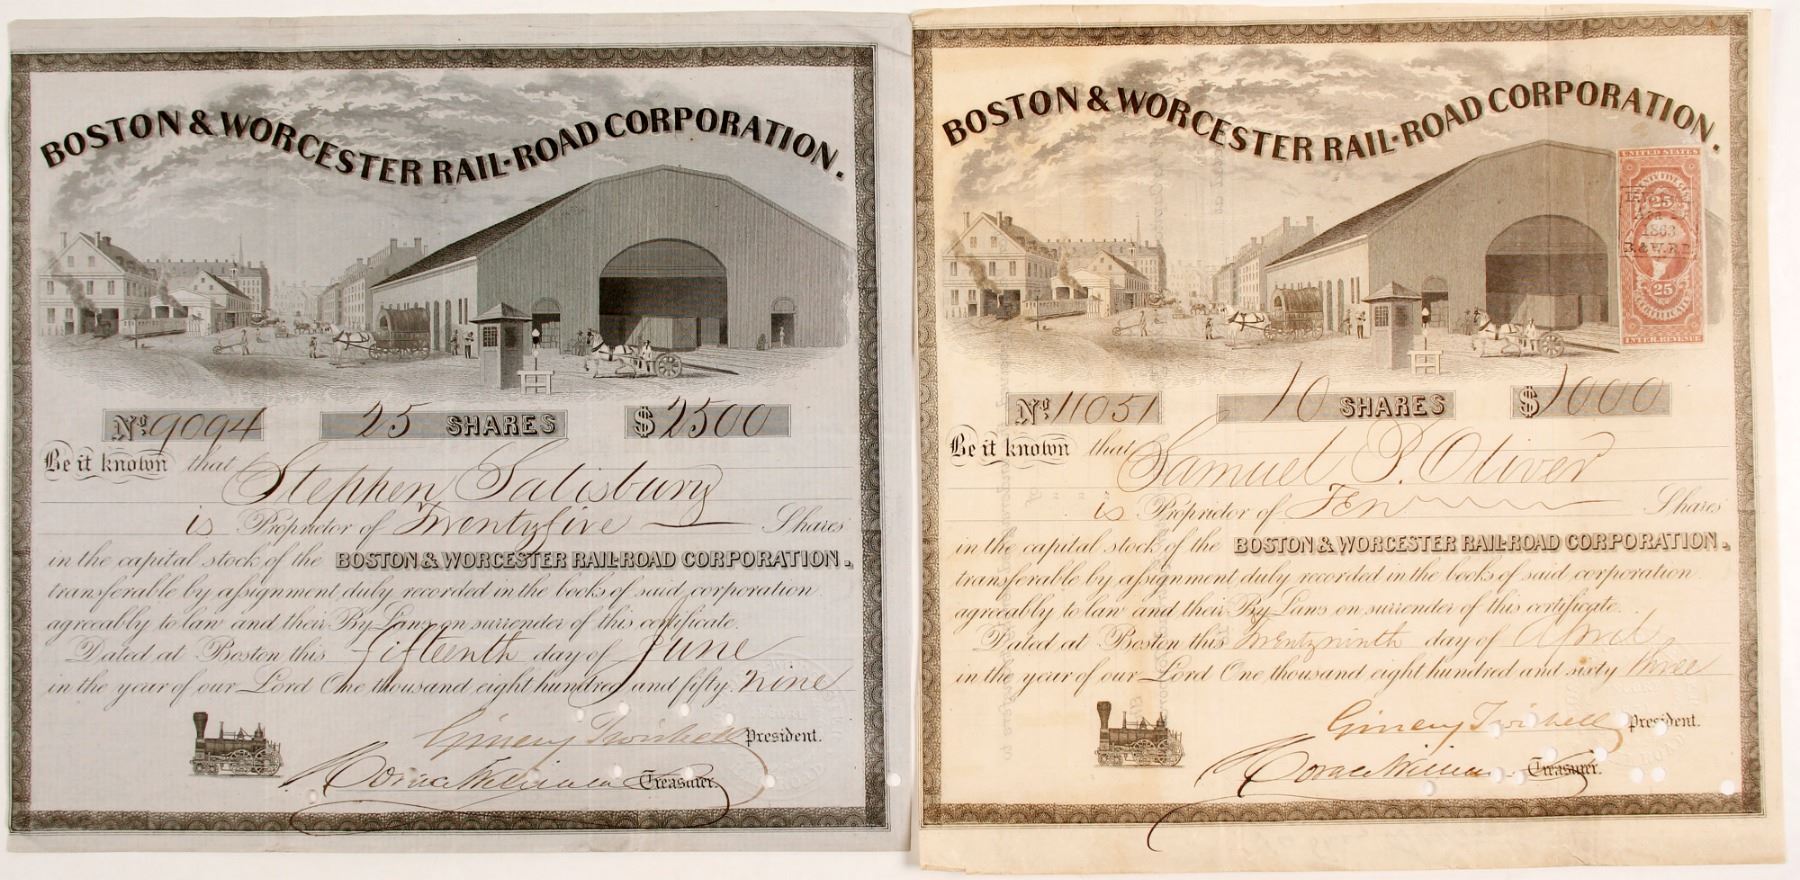 BOSTON & WORCESTER RAIL-ROAD CORPORATION.
No. 9094 25 SHARES $ 2500
Be it known that Stephen Salisbury
is Proprietor of Twenty five Shares
in the capital stock of the BOSTON & WORCESTER RAIL-ROAD CORPORATION.
transferable by assignment duly recorded in the books of said corporation
agreeably to law and their By Laws on surrender of this certificate.
Dated at Boston this fifteenth day of June
in the year of our Lord One thousand eight hundred and fifty nine
Ginery Twichell President.
Horace Williams Treasurer.
BOSTON & WORCESTER RAIL-ROAD CORPORATION.
UNITED STATES
25
Apr
1863
B. & W. R. R.
25
CERTIFICATE
INTER. REVENUE
No. 11051 10 SHARES $ 1000
Be it known that Samuel P. Oliver
is Proprietor of Ten Shares
in the capital stock of the BOSTON & WORCESTER RAIL-ROAD CORPORATION.
transferable by assignment duly recorded in the books of said corporation
agreeably to law and their By Laws on surrender of this certificate.
Dated at Boston this Twenty ninth day of April
in the year of our Lord One thousand eight hundred and sixty three
Ginery Twichell President.
Horace Williams Treasurer.